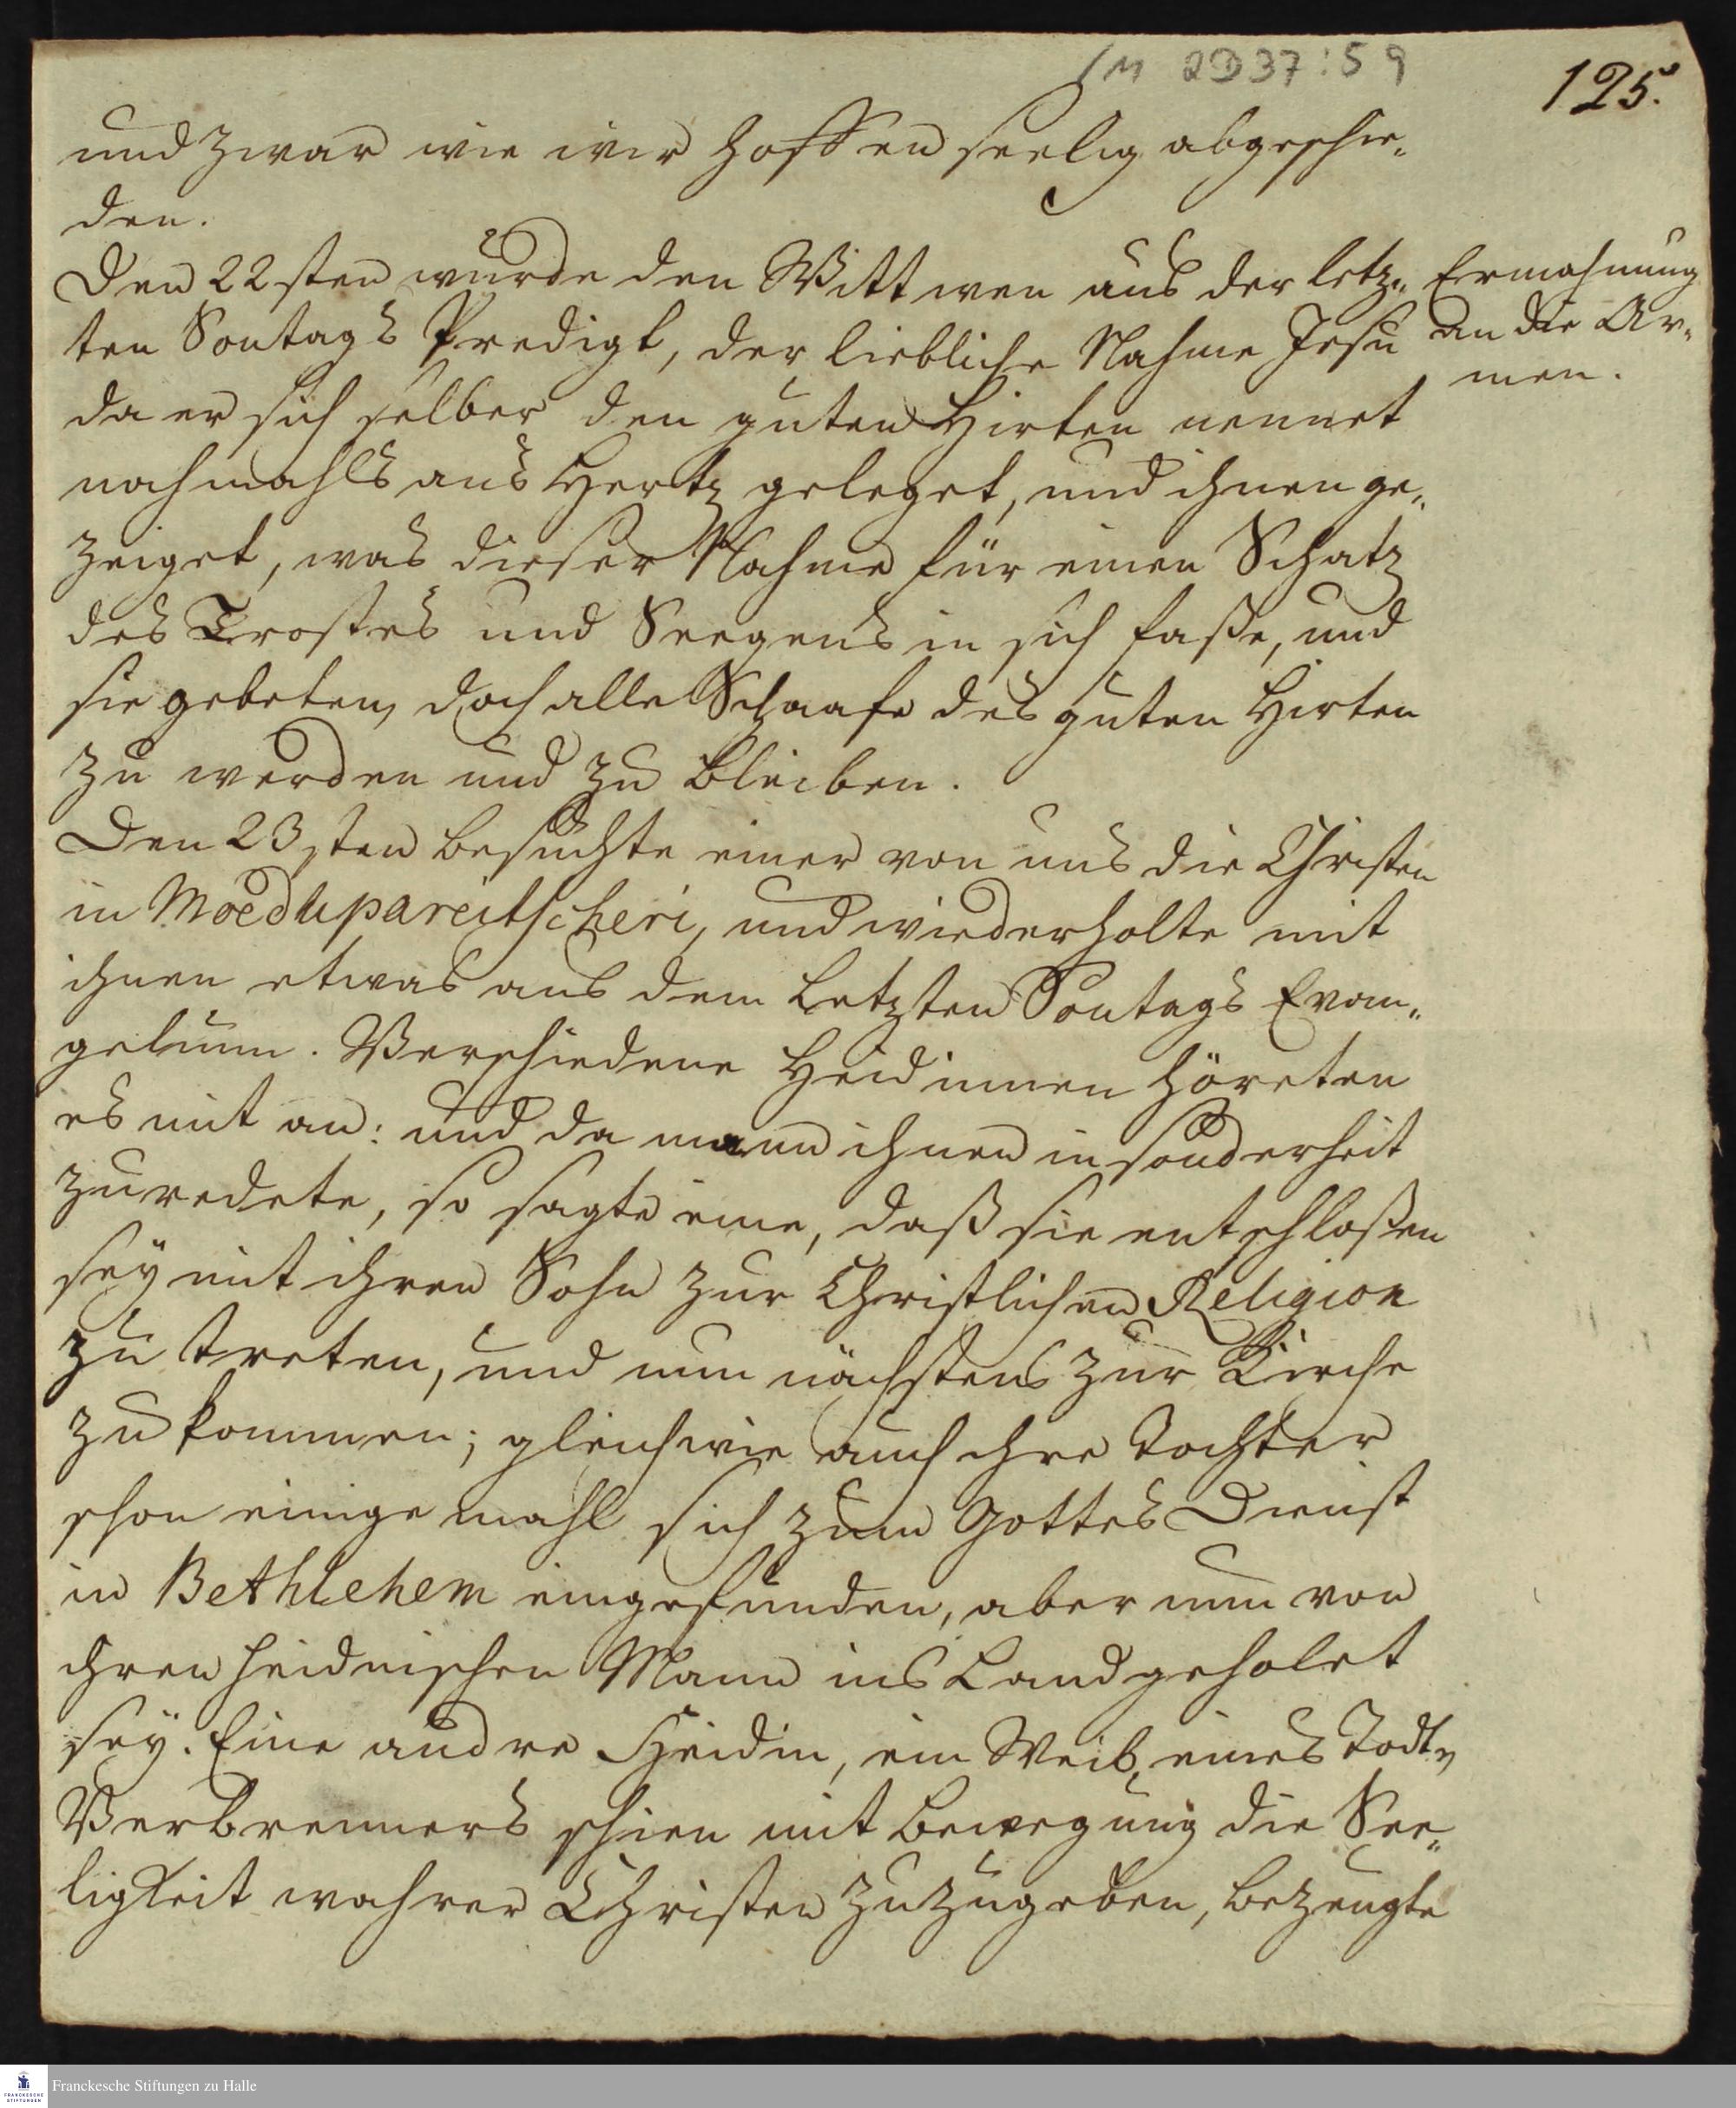 1M 2D37:59
125.
und zwar wie wir hoffen seelig abgeschie„
den.
Den 22sten wurde den Wittwen aus der letz„
ten Sontags Predigt, der liebliche Nahme Jesu
da er sich selber den guten Hirten nennet
nochmahls ans Hertz geleget, und ihnen ge„
zeiget, was dieser Nahme für einen Schatz
des Trostes und Seegens in sich faße, und
sie gebeten, doch alle Schaafe des guten Hirten
zu werden und zu bleiben.
Ermahnung
an die Ar„
men.
Den 23sten besuchte einer von uns die Christen
in Moedupareitscheri, und wiederholte mit
ihnen etwas aus dem letzten Sontags Evan„
gelium. Verschiedene Heidinnen höreten
es mit an: und da mann ihnen insonderheit
zuredete, so sagte eine, daß sie entschloßen
sey mit ihren Sohn zur Christlichen Religion
zu treten, und nun nächstens zur Kirche
zu kommen; gleichwie auch ihre Tochter
schon einige mahl sich zum Gottes Dienst
in Bethlehem eingefunden, aber nun von
ihren heidnischen Mann ins Land geholet
sey. Eine andre Heidin, ein Weib eines Todt„
Verbrenners schien mit Bewegung die See„
ligkeit wahrer Christen zuzugeben, bezeugte
FRANCKESCHE
STIFTUNGEN
Franckesche Stiftungen zu Halle